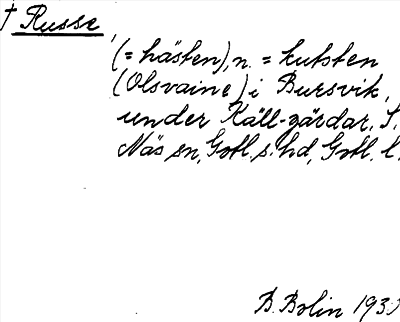 † Russe,
(= hästen), n. = kulsten
(Olsvaine) i Bursvik,
under Käll-gårdar. S.
Näs sn, Gotl. s. hd, Gotl. l.
B. Bolin 193